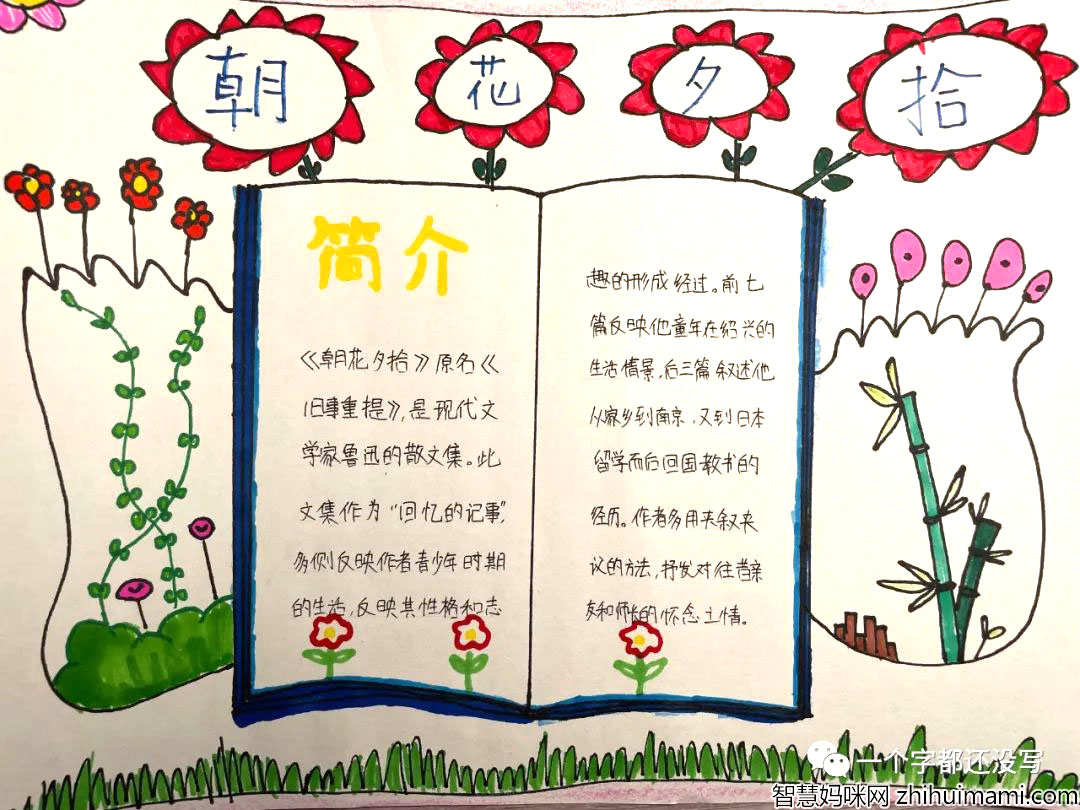 朝花夕拾
简介
《朝花夕拾》原名《
旧事重提》,是现代文
学家鲁迅的散文集。此
文集作为“回忆的记事”,
多侧反映作者青少年时期
的生活,反映其性格和志
趣的形成经过。前七
篇反映他童年在绍兴的
生活情景,后三篇叙述他
从家乡到南京,又到日本
留学而后回国教书的
经历。作者多用夹叙夹
议的方法,抒发对往昔亲
友和师长的怀念之情。
一个字都还没写
智慧妈咪网 zhihuimami.com